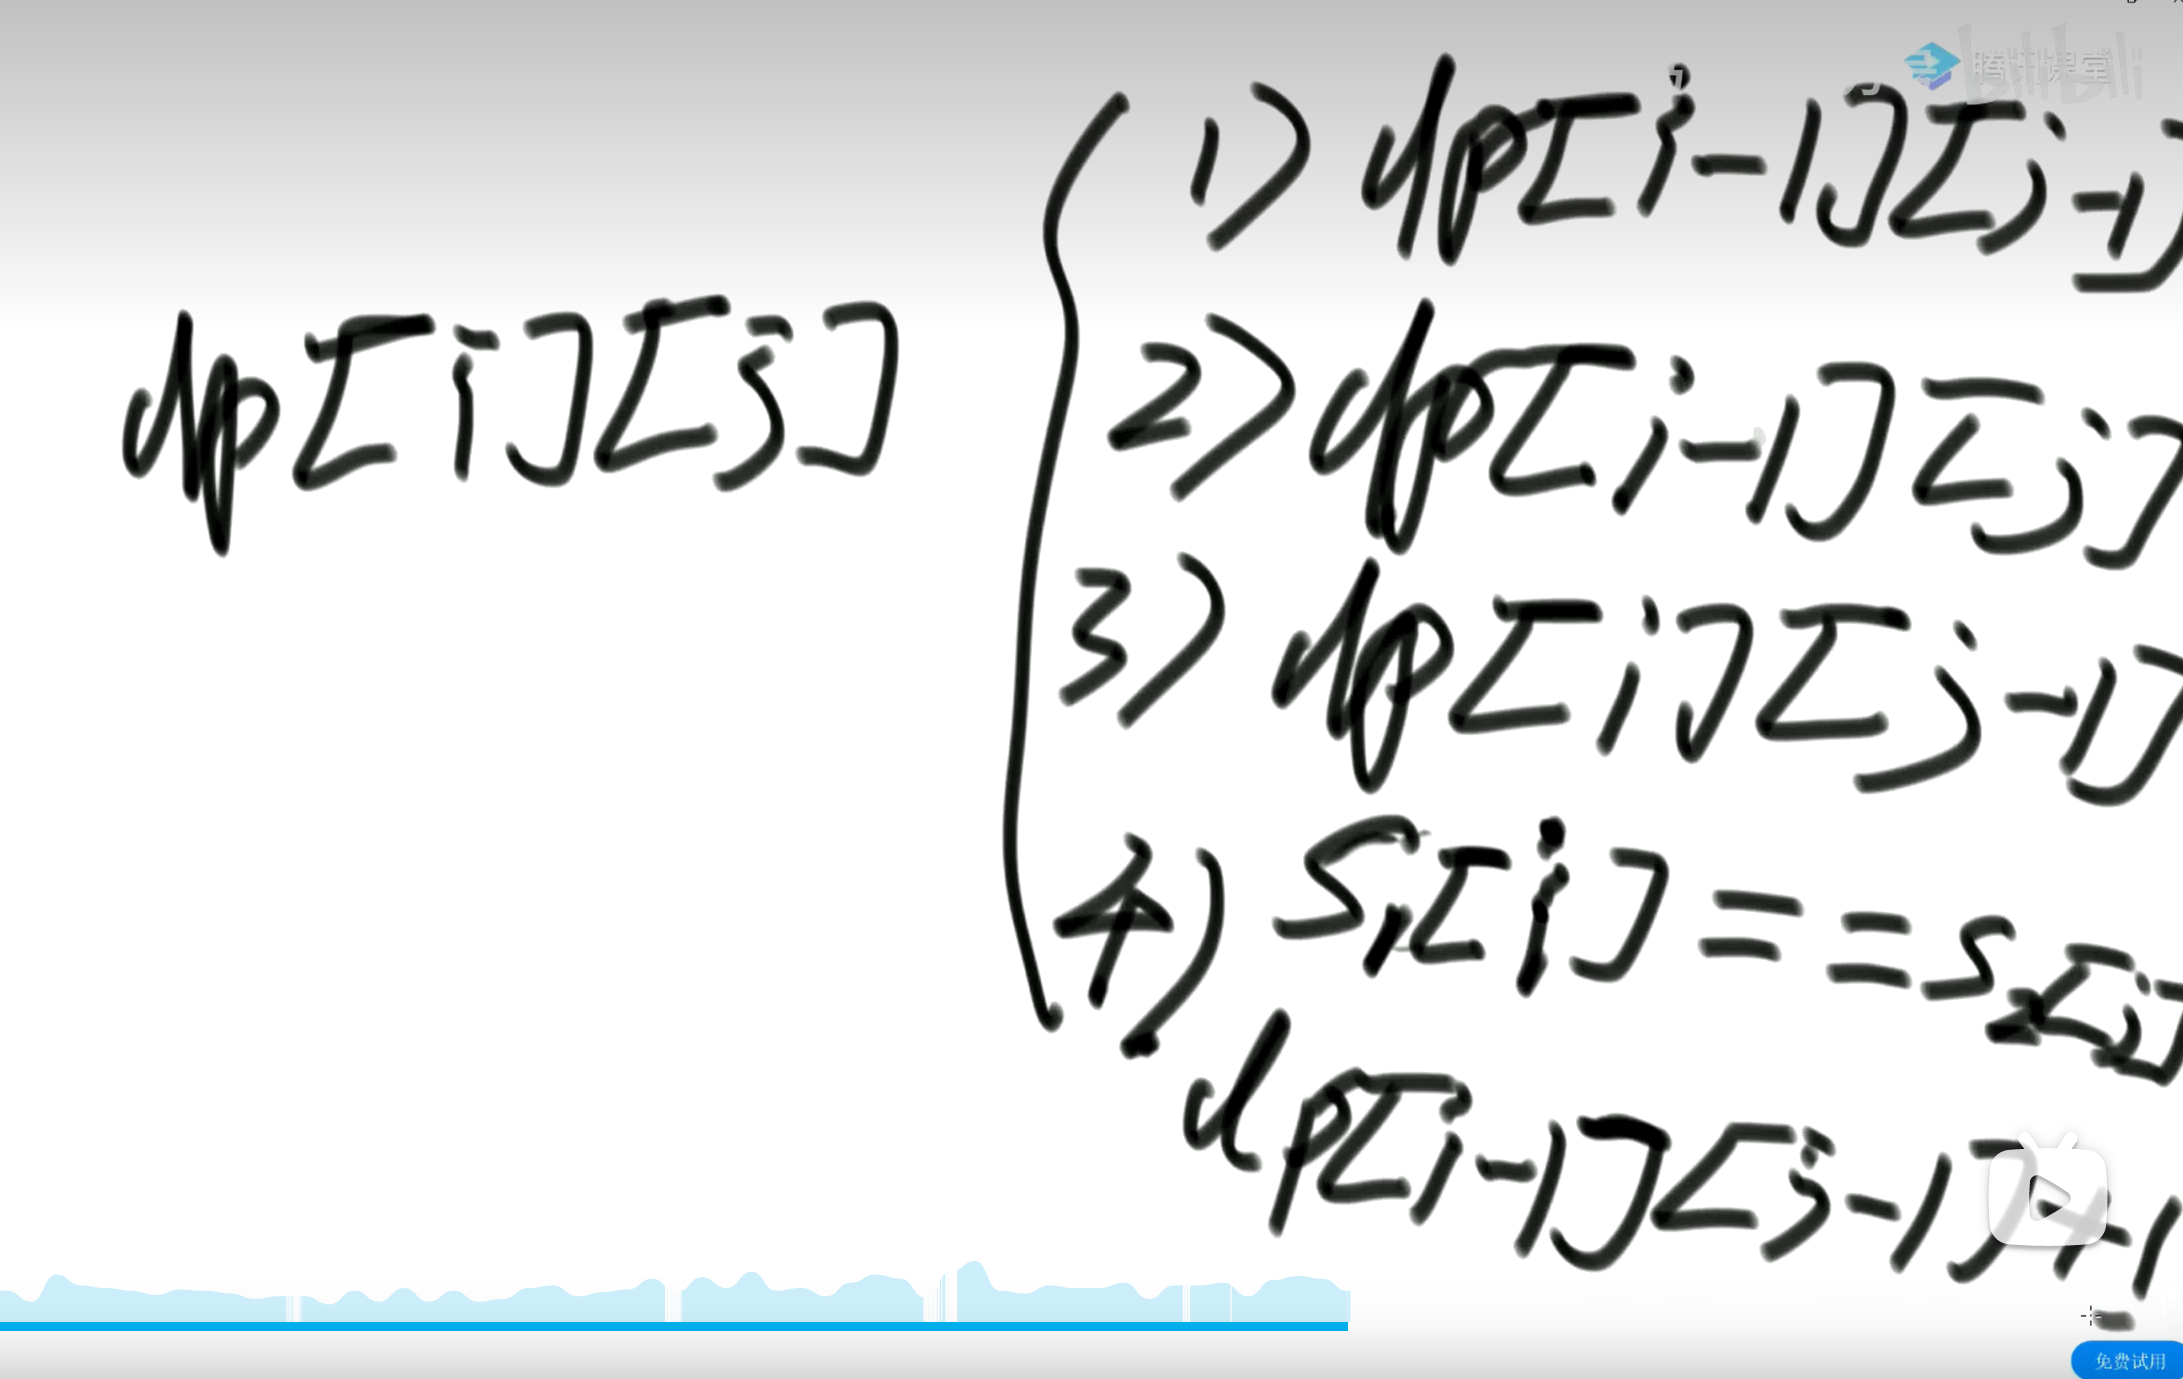 腾讯课堂
bilibili
dp[i][j]
1) dp[i-1][j-1]
2) dp[i-1][j]
3) dp[i][j-1]
4) S1[i] == S2[j]
dp[i-1][j-1]+1
免费试用